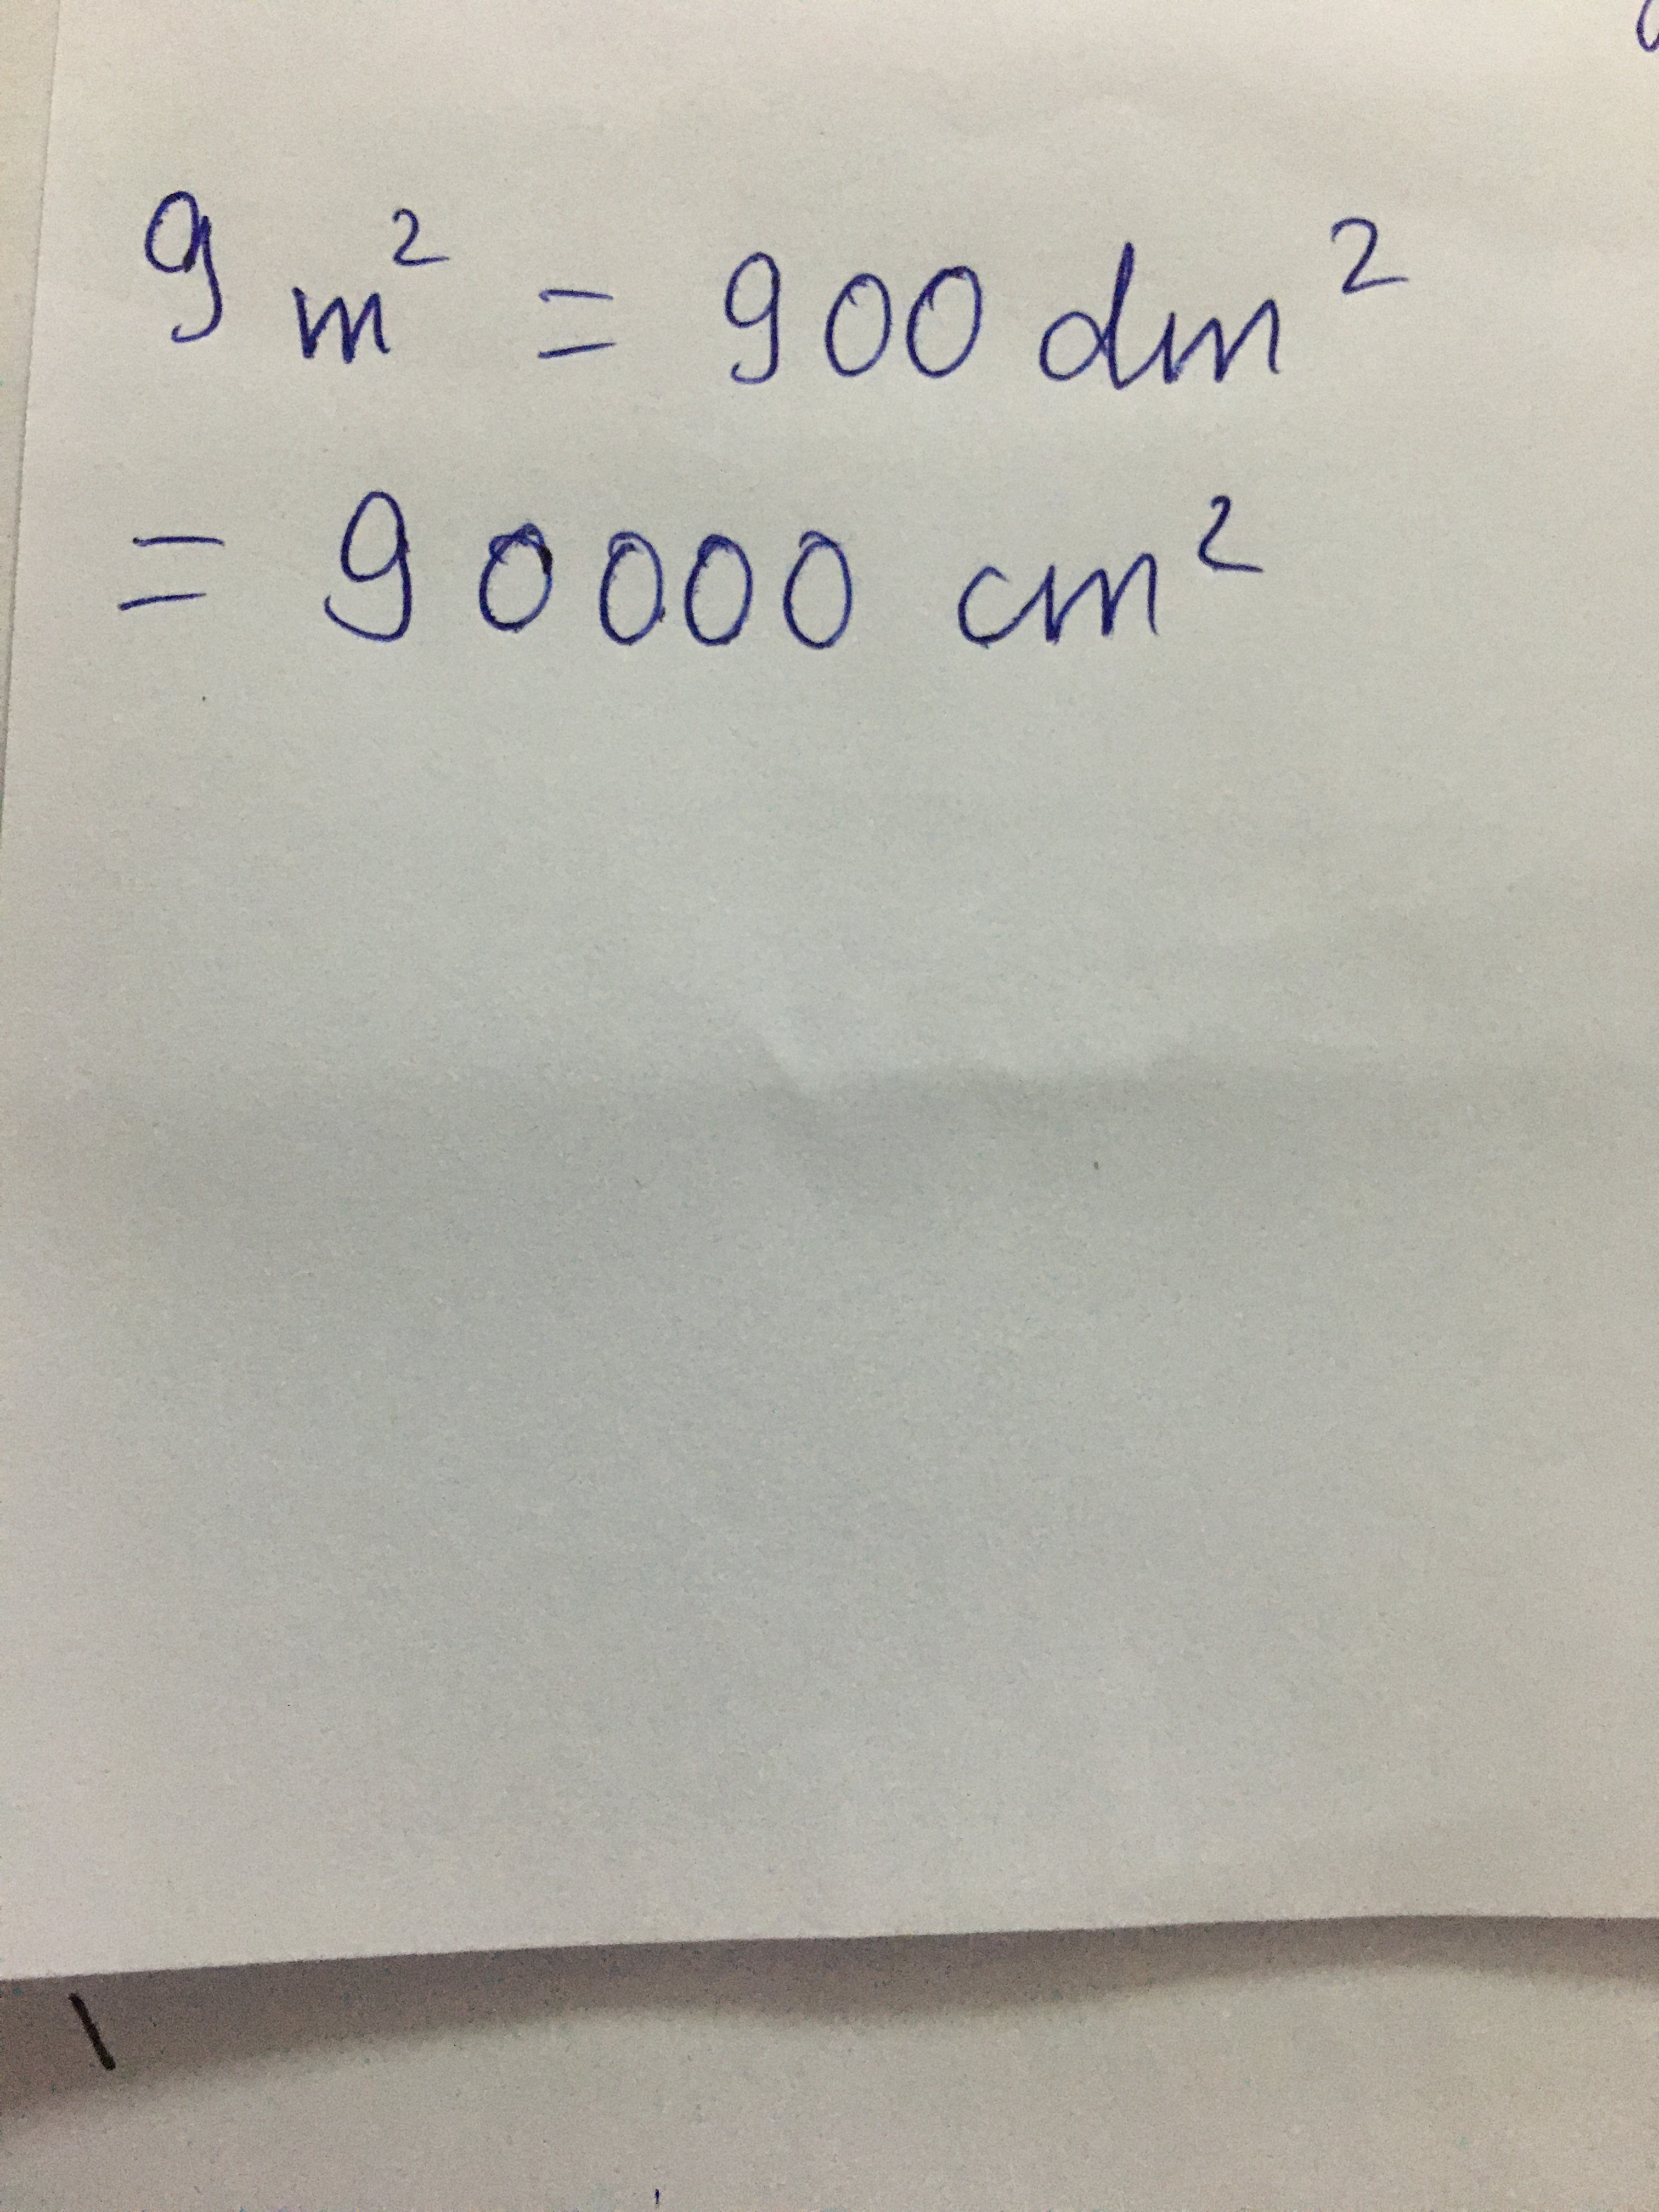 9 m² = 900 dm²
= 90000 cm²